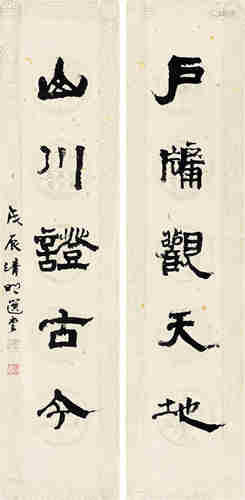 戶牖觀天地
山川證古今
戊辰清明選堂